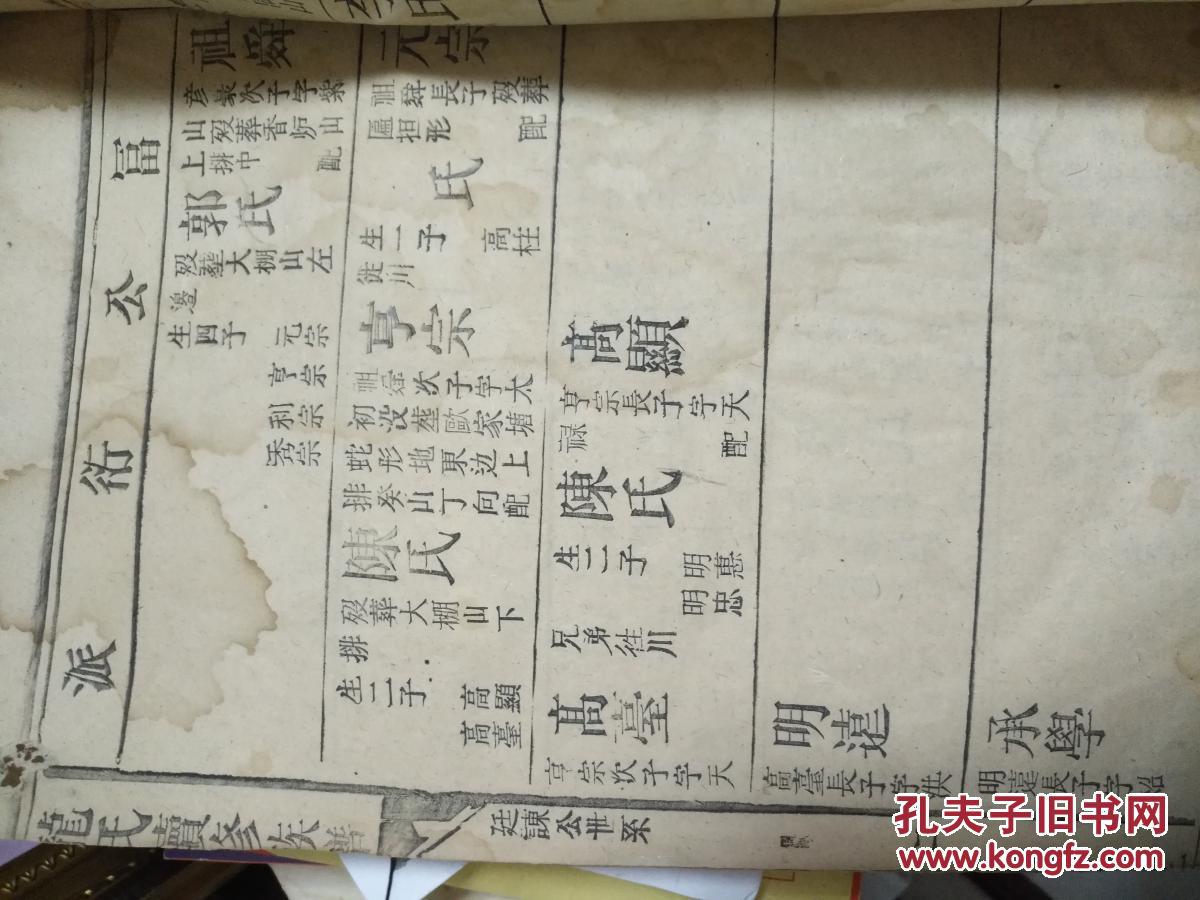 富公衍派
祖舜
次子字紫
山歿葬香炉山
上排中 配
郭氏
歿葬大棚山左
邊
生四子 元宗
亨宗
利宗
秀宗
元宗
祖舜長子歿葬
匾担形 配
氏
生一子 高柱
徙川
亨宗
祖舜次子字太
初没葬歐家塘
蛇形地東边上
排癸山丁向配
陳氏
歿葬大棚山下
排
生二子 高顯
高臺
高顯
亨宗長子字天
禄 配
陳氏
生二子 明惠
明忠
兄弟往川
高臺
亨宗次子字天
明遠
高臺長子字洪
承學
明遠長子字紹
龍氏續修族譜
廷諫公世系
孔夫子旧书网
www.kongfz.com